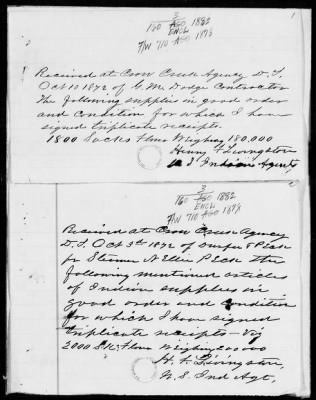 3
160 AGO 1882
ENCL
F/W 710 AGO 1878
1
Received at Crow Creek Agency D.T.
Oct 10 1872 of G. M. Dodge Contractor
The following supplies in good order
and Condition for which I have
signed triplicate receipts.
1800 Sacks Flour Weighing 180.000
Henry F Livingston
U S Indian Agent
2
3
160 AGO 1882
ENCL
F/W 710 AGO 1878
Received at Crow Creek Agency
D.T. Oct 5th 1872 of Durfee & Peck
pr Steamer Nellie Peck the
following mentioned articles
of Indian supplies in
good order and condition
for which I have signed
triplicate receipts - Viz
2000 Sks Flour Weighing 200000
H. F. Livingston,
U. S. Ind Agt.